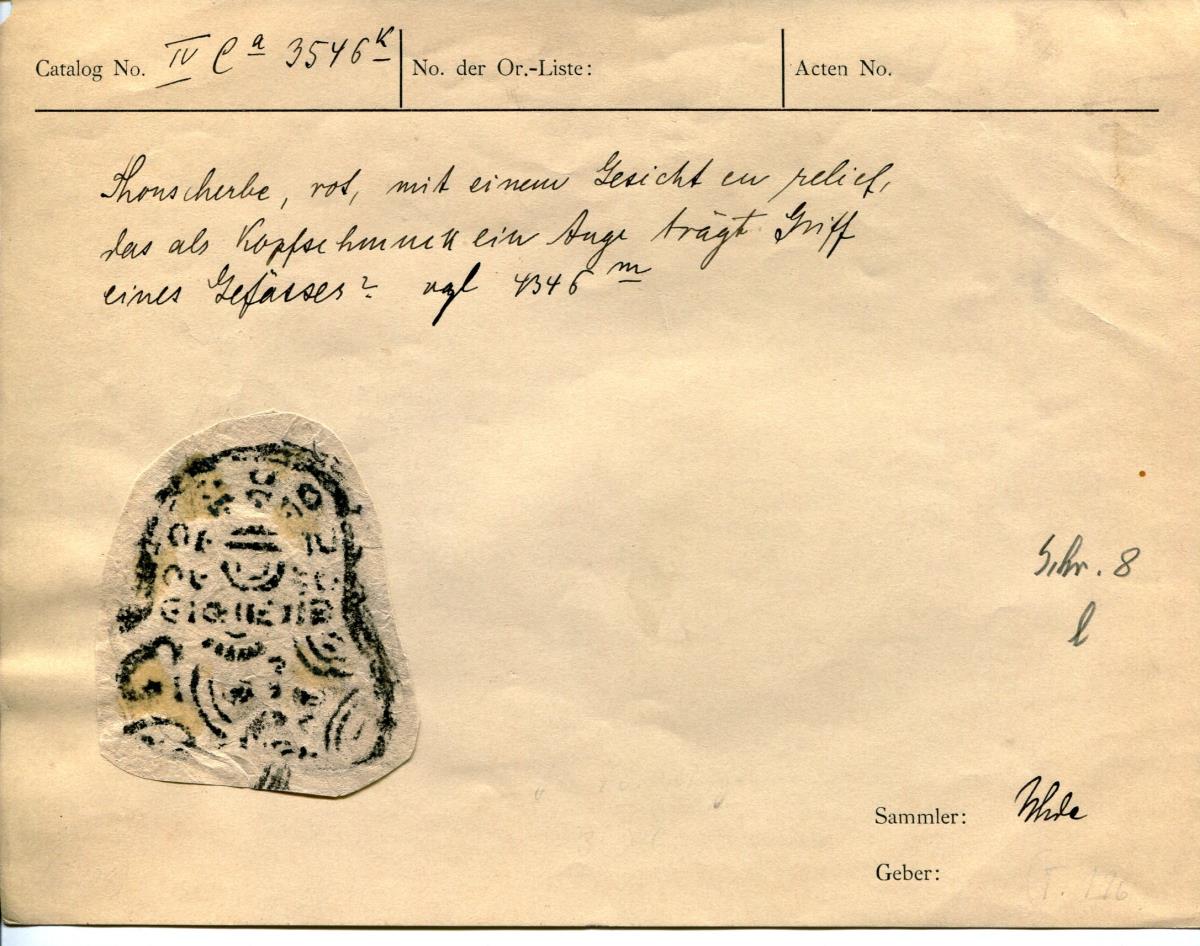 Catalog No. IV C a 3546 K
No. der Or.-Liste:
Acten No.
Thonscherbe, rot, mit einem Gesicht en relief,
das als Kopfschmuck ein Auge trägt. Griff
eines Gefässes? vgl 4346 m
Schr. 8
l
Sammler: Uhde
Geber: